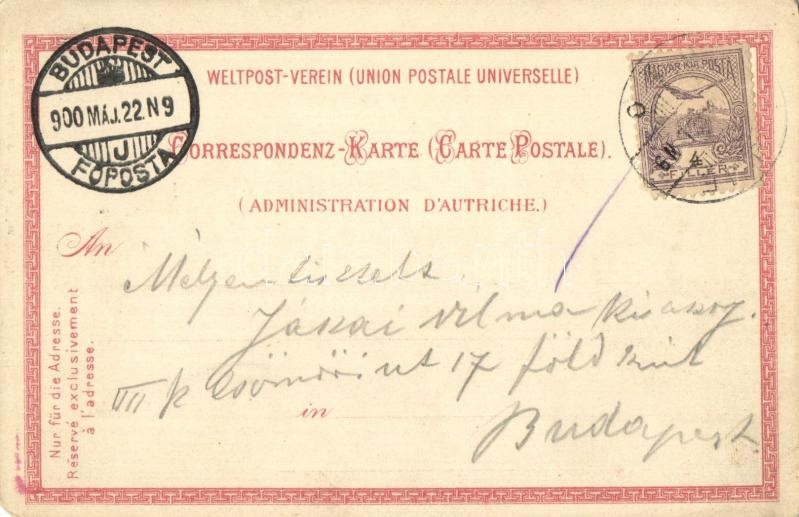 BUDAPEST
900 MÁJ. 22. N 9
J
FŐPOSTA
WELTPOST-VEREIN (UNION POSTALE UNIVERSELLE)
MAGYAR KIR. POSTA
4
FILLÉR
CORRESPONDENZ-KARTE (CARTE POSTALE).
(ADMINISTRATION D'AUTRICHE.)
An
Nur für die Adresse.
Réservé exclusivement
à l'adresse.
Jászai Vilma kisasszony.
VII k Csömöri út 17 föld szint
in
Budapest